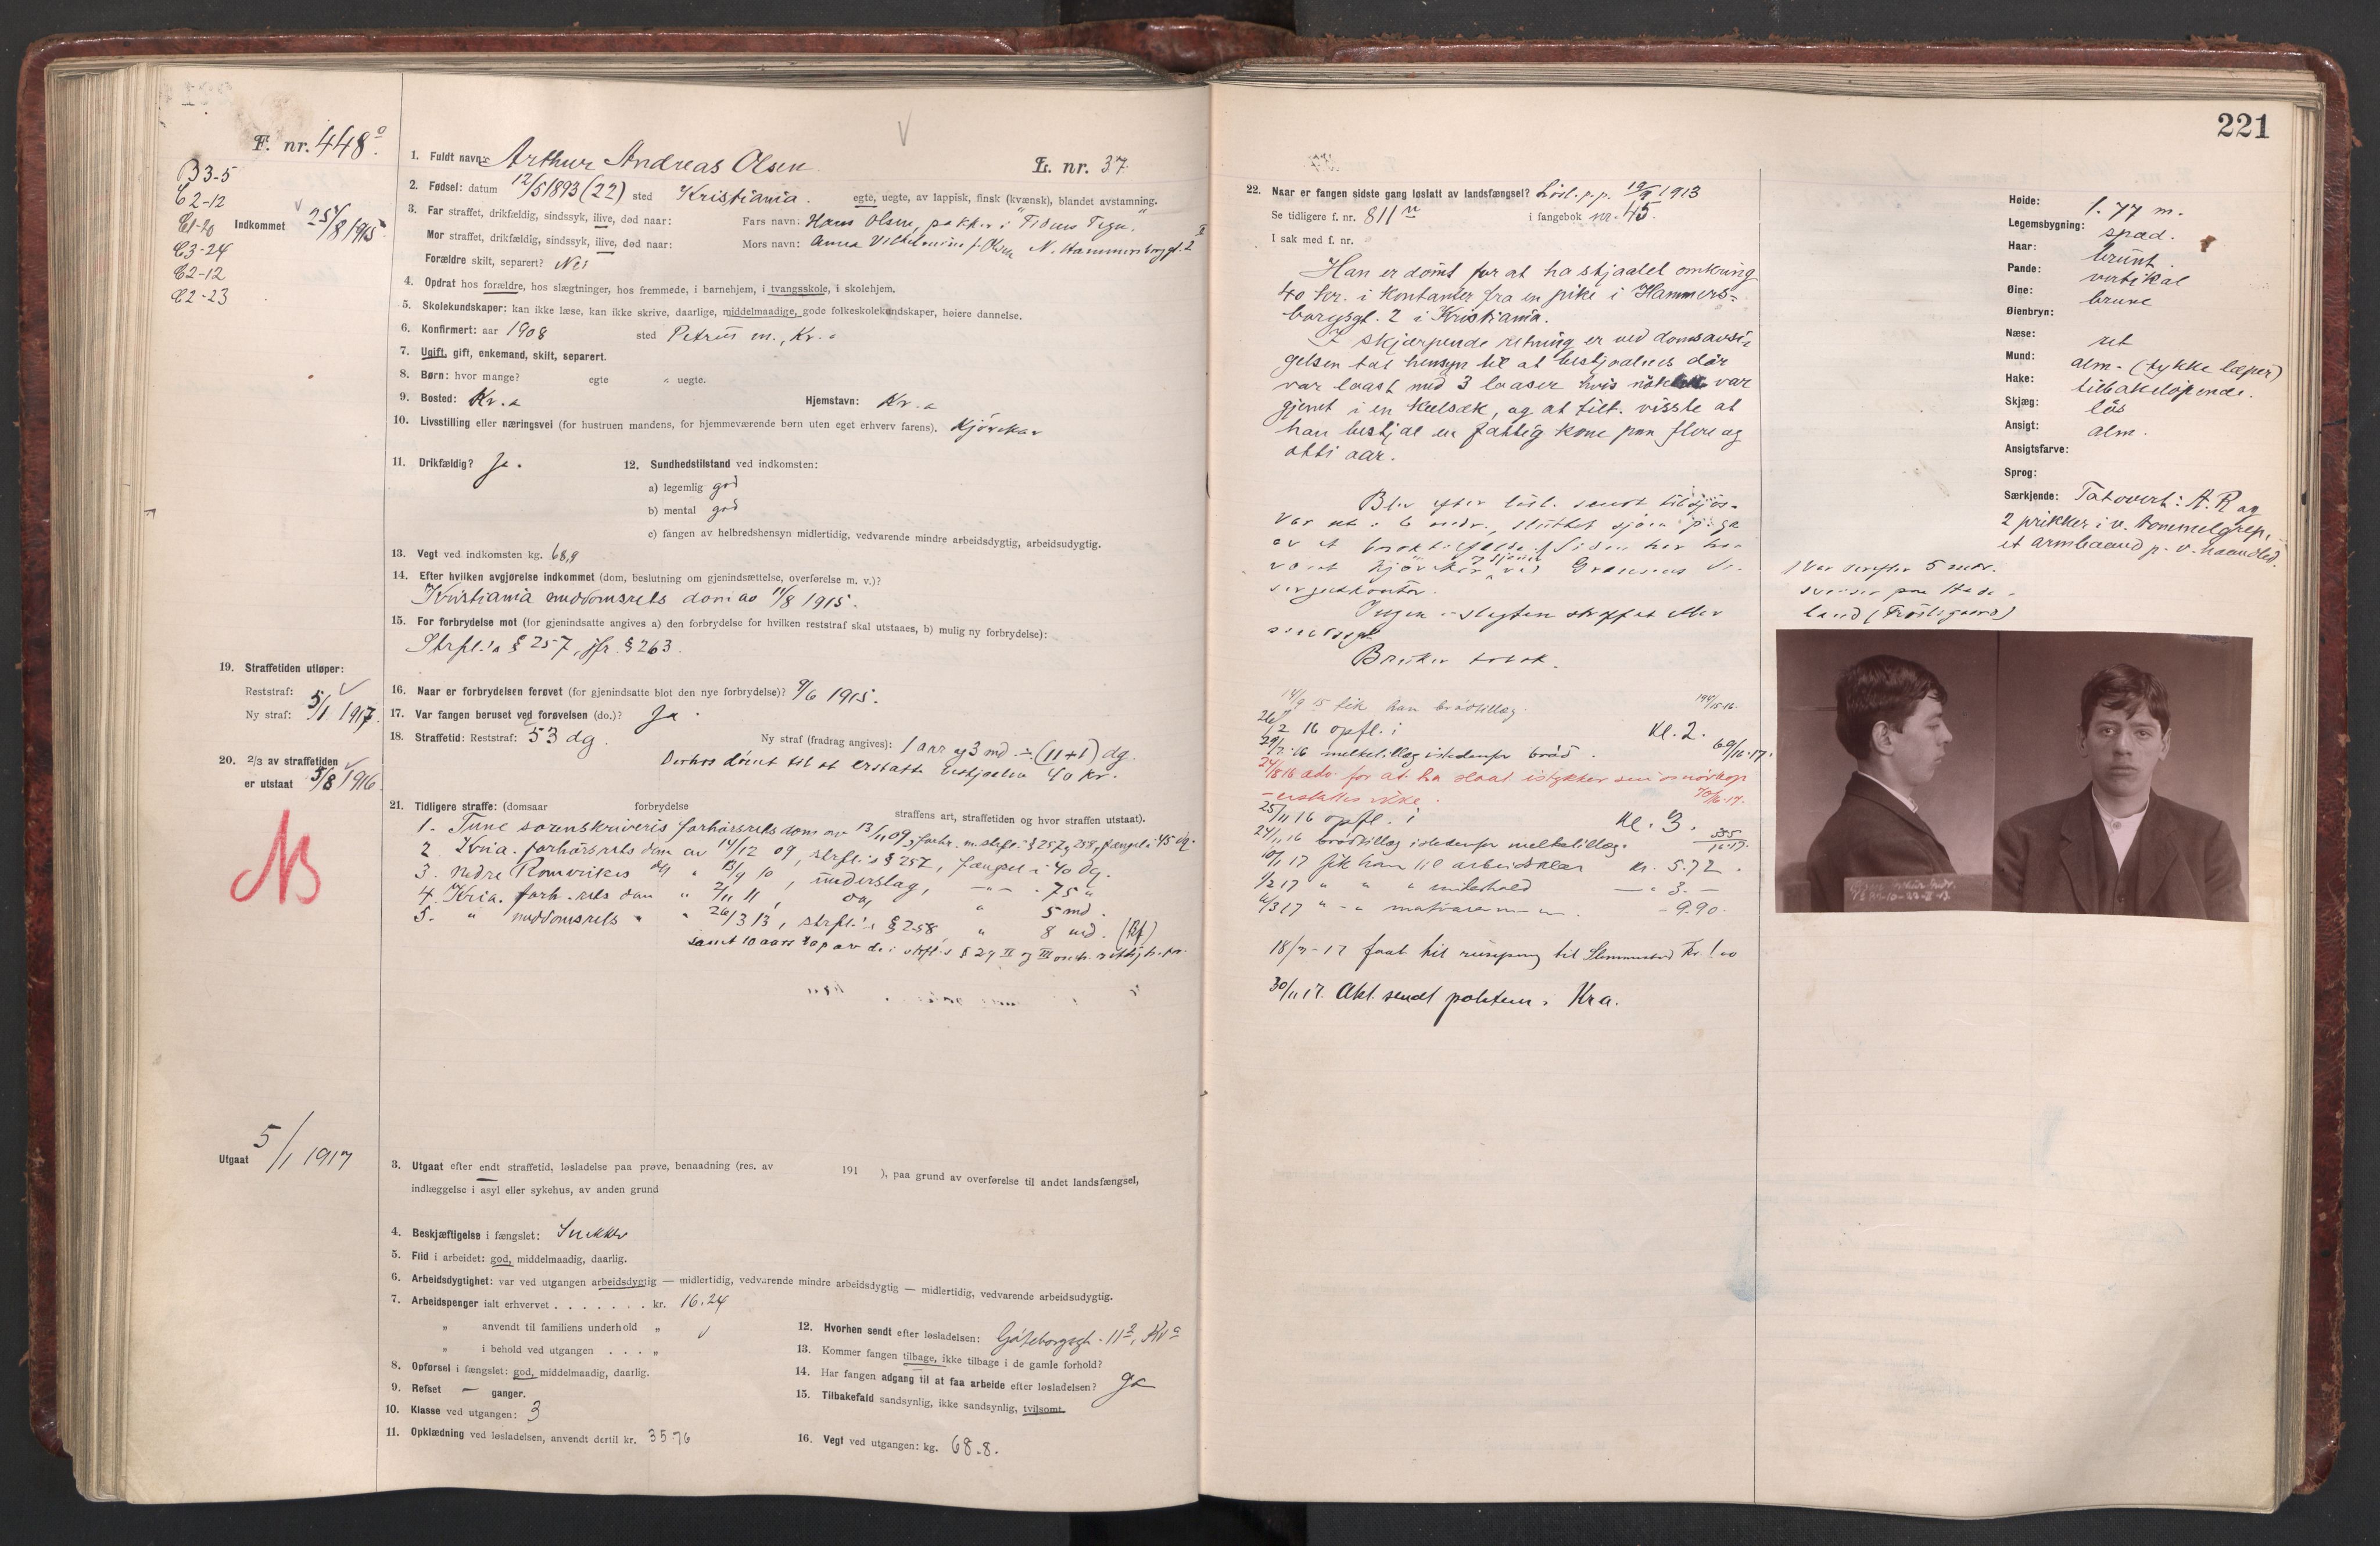 F. nr. 448 o.
B3-5
C2-12
C1-20
C3-24
C2-12
C2-23
Indkommet 25/8 1915
1. Fuldt navn: Arthur Andreas Olsen
L. nr. 37
2. Fødsel: datum 12/5 1893 (22) sted Kristiania. egte, uegte, av lappisk, finsk (kvænsk), blandet avstamning.
3. Far straffet, drikfældig, sindssyk, ilive, død naar: Fars navn: Hans Olsen, pakker i "Tidens Tegn".
Mor straffet, drikfældig, sindssyk, ilive, død naar: Mors navn: Anna Vilhelmine f. Olsen N. Hammersborggt. 2 II
Forældre skilt, separert? Nei
4. Opdrat hos forældre, hos slægtninger, hos fremmede, i barnehjem, i tvangsskole, i skolehjem.
5. Skolekundskaper: kan ikke læse, kan ikke skrive, daarlige, middelmaadige, gode folkeskolekundskaper, høiere dannelse.
6. Konfirmert: aar 1908 sted Petrus m., Kr.a
7. Ugift, gift, enkemand, skilt, separert.
8. Børn: hvor mange? egte uegte.
9. Bosted: Kr.a Hjemstavn: Kr.a
10. Livsstilling eller næringsvei (for hustruen mandens, for hjemmeværende børn uten eget erhverv farens). Kjørekar
11. Drikfældig? Ja.
12. Sundhedstilstand ved indkomsten:
a) legemlig god
b) mental god
c) fangen av helbredshensyn midlertidig, vedvarende mindre arbeidsdygtig, arbeidsudygtig.
13. Vegt ved indkomsten kg. 68,9
14. Efter hvilken avgjørelse indkommet (dom, beslutning om gjenindsættelse, overførelse m. v.)?
Kristiania meddomsrets dom av 11/8 1915.
15. For forbrydelse mot (for gjenindsatte angives a) den forbrydelse for hvilken reststraf skal utstaaes, b) mulig ny forbrydelse):
Strfl.'s § 257, jfr. § 263.
16. Naar er forbrydelsen forøvet (for gjenindsatte blot den nye forbrydelse)? 9/6 1915.
17. Var fangen beruset ved forøvelsen (do.)? Ja.
18. Straffetid: Reststraf: 53 dg. Ny straf (fradrag angives): 1 aar og 3 md ÷ (11+1) dg.
Derhos dømt til at erstatte bestjaalne 40 kr.
19. Straffetiden utløper:
Reststraf:
Ny straf: 5/1 1917
20. 2/3 av straffetiden
er utstaat 5/8 1916
21. Tidligere straffe: (domsaar forbrydelse straffens art, straffetiden og hvor straffen utstaat).
1. Tune sorenskriveris forhørsrets dom av 13/11 09, forbr. m. strfl.'s § 257 og 258, fængsel i 45 dg.
2. Kria. forhørsrets dom av 14/12 09, strfl.'s § 257, fængsel i 40 dg.
3. Nedre Romerikes do " 13/9 10, underslag, " 75 "
4. Kria. forh.-rets dom " 2/11 11, do, " 5 md.
5. " meddomsrets " " 26/3 13, strfl.'s § 258 " 8 md. (Bf)
samt 10 aars tap av de i strfl.'s § 29 II og III omh. rettigh.
Utgaat 5/1 1917
3. Utgaat efter endt straffetid, løsladelse paa prøve, benaadning (res. av 191 ), paa grund av overførelse til andet landsfængsel,
indlæggelse i asyl eller sykehus, av anden grund
4. Beskjæftigelse i fængslet: Snekker
5. Flid i arbeidet: god, middelmaadig, daarlig.
6. Arbeidsdygtighet: var ved utgangen arbeidsdygtig — midlertidig, vedvarende mindre arbeidsdygtig — midlertidig, vedvarende arbeidsudygtig.
7. Arbeidspenger ialt erhvervet . . . . . . . kr. 16.24
" anvendt til familiens underhold "
" i behold ved utgangen . . . "
8. Opførsel i fængslet: god, middelmaadig, daarlig.
9. Refset — ganger.
10. Klasse ved utgangen: 3
11. Opklædning ved løsladelsen, anvendt dertil kr. 35.76
12. Hvorhen sendt efter løsladelsen: Gøteborggt. 11², Kra
13. Kommer fangen tilbage, ikke tilbage i de gamle forhold?
14. Har fangen adgang til at faa arbeide efter løsladelsen? Ja
15. Tilbakefald sandsynlig, ikke sandsynlig, tvilsomt.
16. Vegt ved utgangen: kg. 68.8.
221
22. Naar er fangen sidste gang løslatt av landsfængsel? Løsl. p.p. 19/9 1913
Se tidligere f. nr. 811 n i fangebok nr. 45.
I sak med f. nr.
Han er dømt for at ha stjaalet omkring
40 kr. i kontanter fra en pike i Hammers-
borggt. 2 i Kristiania.
I skjærpende retning er ved domsavsi-
gelsen tat hensyn til at bestjaalnes dør
var laast med 3 laaser hvis nøkler var
gjemt i en kulsæk, og at tilt. visste at
han bestjal en fattig kone paa flere og
otti aar.
Blev efter løsl. sendt tilsjøs.
Var ut i 6 mdr., sluttet sjøen p. ga
av et broktilfælde. / Siden har han
været kjørekar ved Grænsens
Ingen i slegten straffet eller
sindssyk
Bruker tobak.
14/9 15 fik han brødtillæg.
26/2 16 opfl. i Kl. 2.
29/2 16 melketillæg istedenfor brød. 69/16-17.
24/8 16 adv. for at ha slaat istykker
- erstattes ikke. 70/16-17.
25/11 16 opfl. i Kl. 3.
24/11 16 brødtillæg istedenfor melketillæg. 585/16-17.
10/1 17 fik han til arbeidsklær kr. 5.72.
1/2 17 " " " underhold — " 3. —
6/3 17 " - " matvarer - 9.90.
18/7-17 faat til reisepeng til Slemmestad Kr. 1.00
30/11 17. Akt. sendt politem. i Kra.
Høide: 1.77 m.
Legemsbygning: spæd.
Haar: brunt
Pande: vertikal
Øine: brune
Øienbryn:
Næse: ret
Mund: alm. (tykke læper)
Hake: tilbakeløpende.
Skjæg: løs
Ansigt: alm.
Ansigtsfarve:
Sprog:
Særkjende: Tatovert: A. R og
2 prikker i v. tommelgrep,
et armbaand p. v. haandled.
/ Var derefter 5 mdr.
sveiser paa Hade-
land